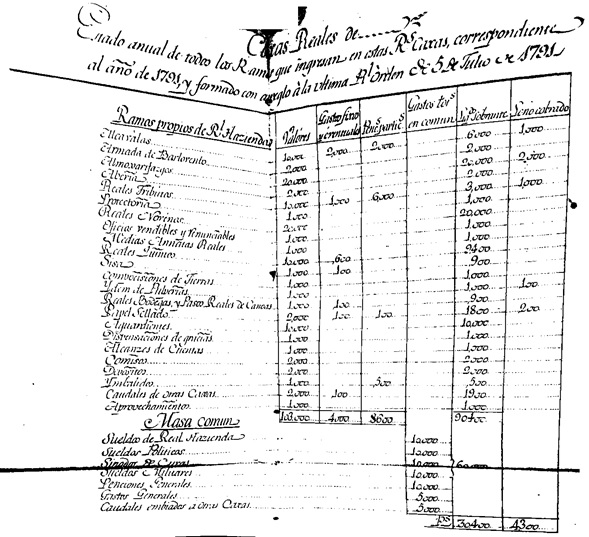 Caxas Reales de
Estado anual de todos los Ramos que ingresan en estas R.s Caxas, correspondiente
al año de 1791, y formado con arreglo à la ultima R.l Orden de 5 de Julio de 1791.
Ramos propios de R.l Hazienda Valores Gastos fixos y eventuales Pens.s partic.s Gastos en comun Liq.o Sobrante Id. no cobrado
Alcavalas 10,000 2,000 2,000 6,000 1,000
Armada de Barlovento 2,000 2,000
Almoxarifazgos 20,000 20,000 2,000
Alberia 2,000 2,000
Reales Tributos 10,000 1,000 6,000 3,000 1,000
Protectoria 1,000 1,000
Reales Novenos 20,000 20,000
Oficios vendibles y renunciables 1,000 1,000
Medias Annatas Reales 1,000 1,000
Reales Quintos 10,000 ,600 9400
Sisa 1,000 ,100 ,900
Composiciones de Tierras 1,000 1,000
Ydem de Pulperias 1,000 1,000 ,100
Reales Bodegas, y Pasos Reales de Canoas 1,000 ,100 ,900
Papel Sellado 2,000 ,100 ,100 1800 ,200
Aguardientes 10,000 10,000
Dispensaciones de gracias 1,000 1,000
Alcanzes de Cuentas 1,000 1,000
Comisos 2,000 2,000
Depositos 2,000 2,000
Ymbalidos 1,000 ,500 ,500
Caudales de otras Caxas 2,000 ,100 1900
Aprovechamientos 1,000 1,000
103,000 4,000 8600 90400
Masa comun
Sueldos de Real Hazienda 10,000
Sueldos Politicos 10,000
Sinodos de Curas 10,000 60,000
Sueldos Militares 10,000
Penciones Generales 10,000
Gastos Generales 5,000
Caudales embiados a otras Caxas 5,000
ps 30400 4300